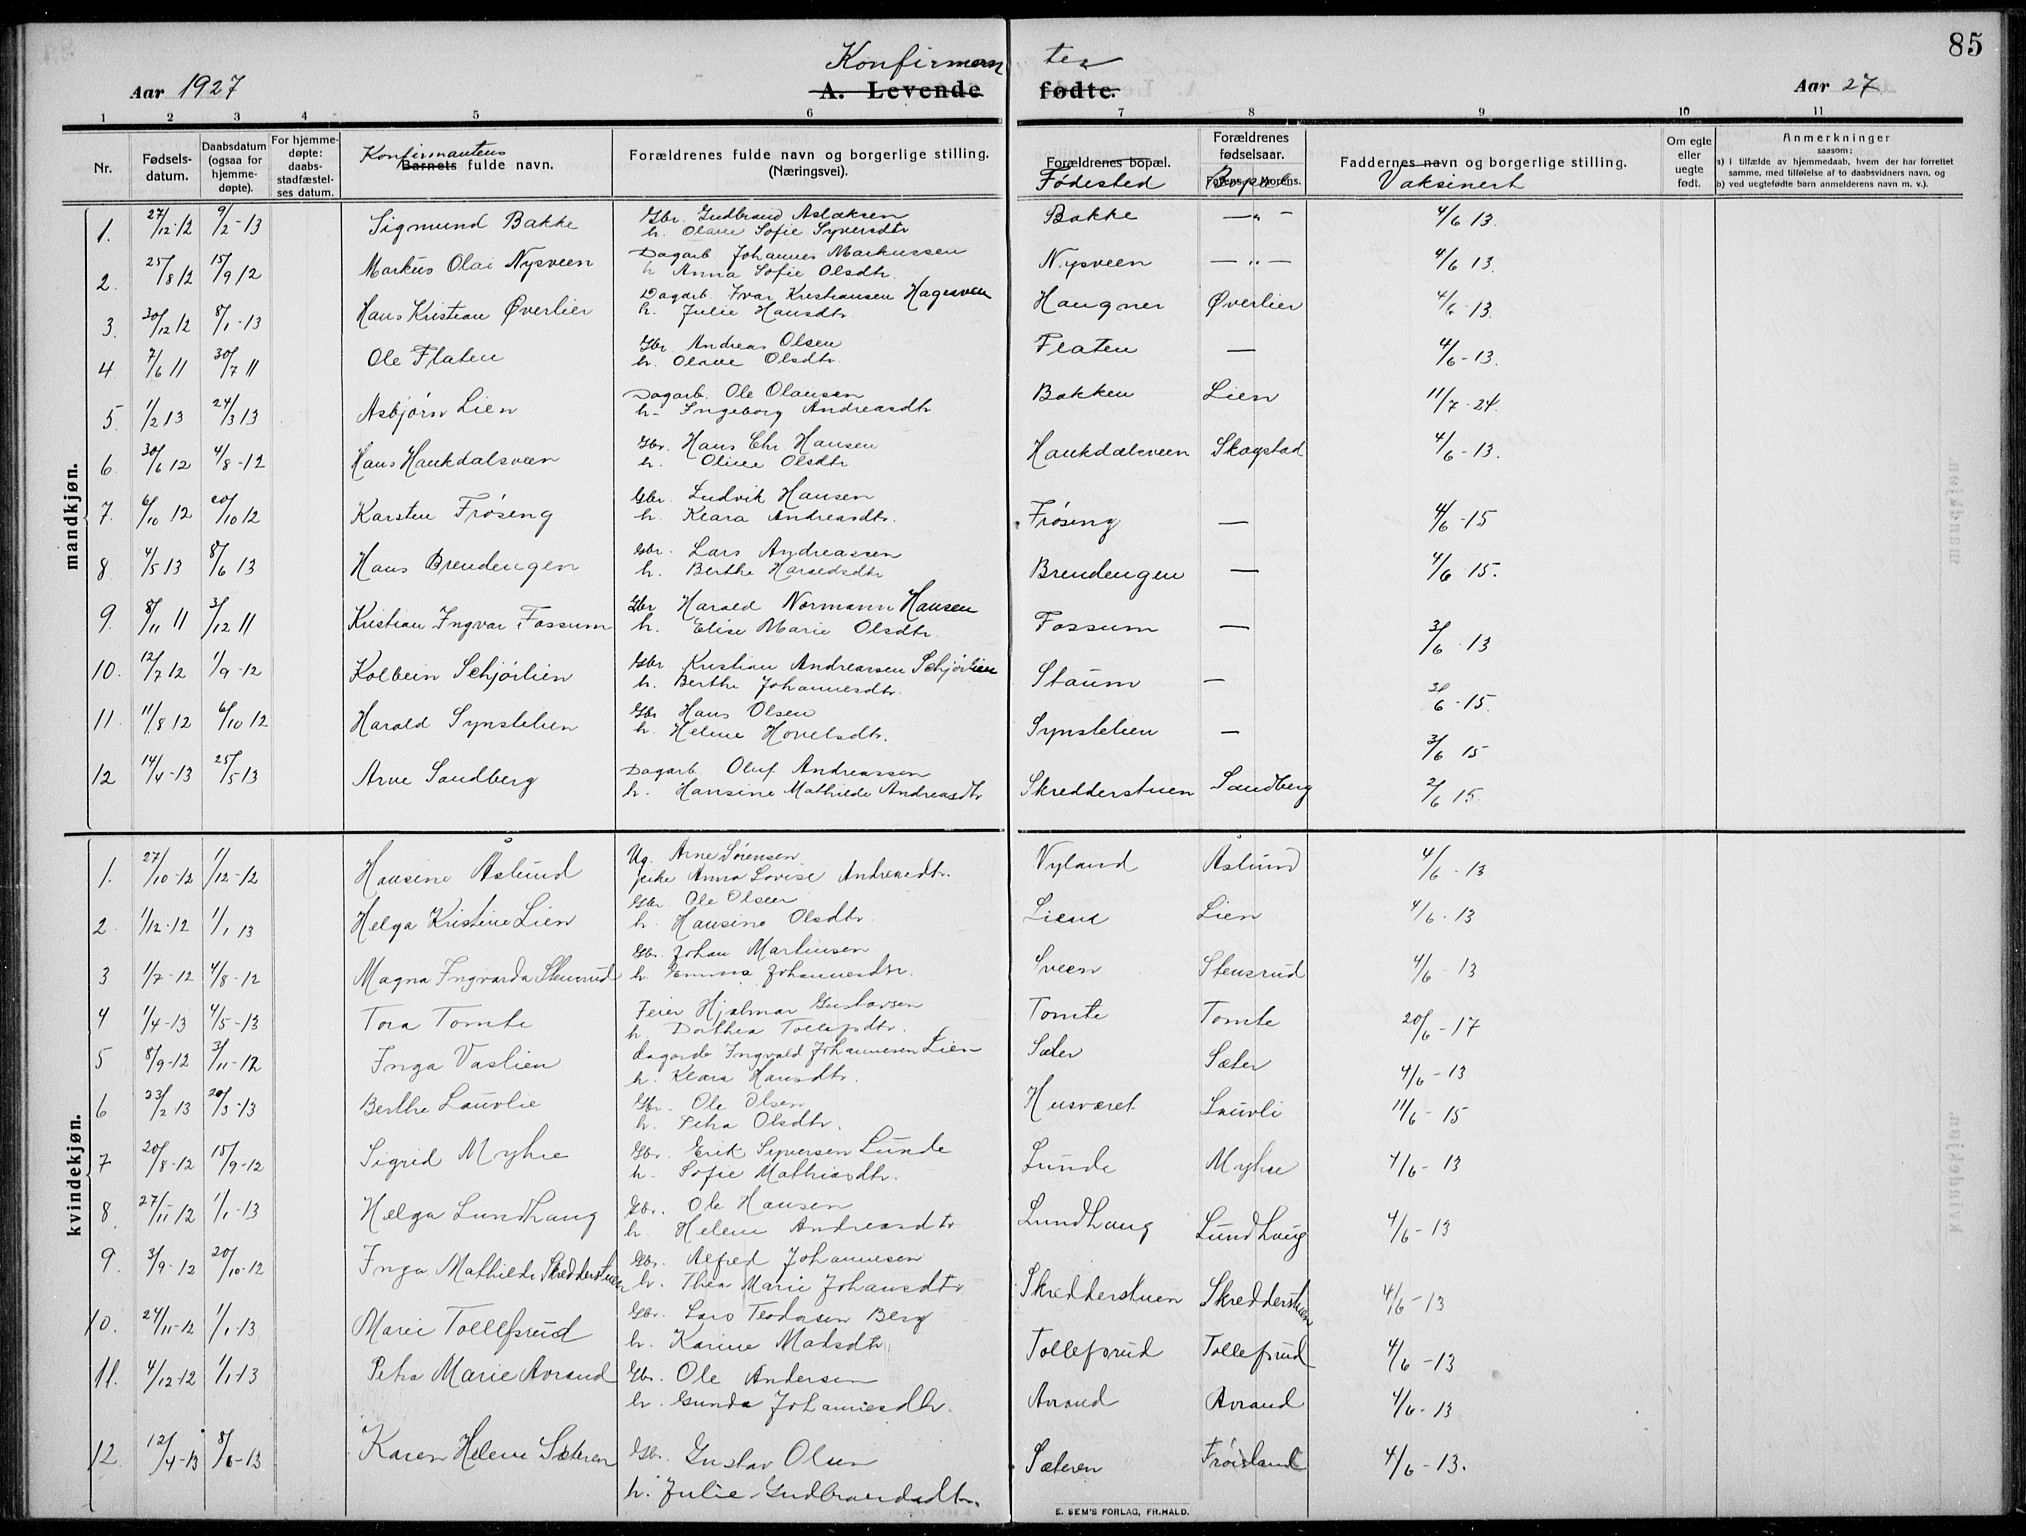 85
Konfirman ter
Aar 1927 A. Levende fødte. Aar 27.
1 2 3 4 5 6 7 8 9 10 11
Nr. Fødsels-datum. Daabsdatum (ogsaa for hjemme-døpte). For hjemme-døpte: daabs-stadfæstel-ses datum. Konfirmantens Barnets fulde navn. Forældrenes fulde navn og borgerlige stilling. (Næringsvei). Forældrenes bopæl. Fødested Forældrenes fødselsaar. Farens. Morens. Bopæl Faddernes navn og borgerlige stilling. Vaksinert Om egte eller uegte født. Anmerkninger saasom: a) i tilfælde av hjemmedaab, hvem der har forrettet samme, med tilføielse af to daabsvidners navn, og b) ved uegtefødte barn anmelderens navn m. v.).
mandkjøn.
1. 27/12-12 9/2-13 Sigmund Bakke Gbr. Gudbrand Aslaksen Bakke —„— 4/6 13.
h. Olave Sofie Syversdtr
2. 25/8 12 15/9 12 Markus Olai Nysveen Dagarb. Johannes Markussen Nysveen —„— 4/6 13.
h Anna Sofie Olsdtr.
3. 30/12 12 8/1-13 Hans Kristian Øverlier Dagarb. Ivar Kristiansen Hagesveen Haugner Øverlier 4/6-13.
h. Julie Hansdtr
4. 7/6 11 30/7 11 Ole Flaten Gbr. Andreas Olsen Flaten — 4/6-13.
h. Olave Olsdtr.
5. 1/2 13 24/3 13 Asbjørn Lien Dagarb. Ole Olausen Bakken Lien 11/7-24.
h- Ingeborg Andreasdtr
6. 30/6 12 4/8-12 Hans Haukdalsveen Gbr. Hans Chr Hansen Haukdalsveen Skogstad 4/6-13.
h. Oline Olsdtr
7. 6/10 12 20/10 12 Karsten Frøseng Gbr. Ludvik Hansen Frøseng — 4/6-15
h. Klara Andreasdtr.
8 4/5 13 8/6 13 Hans Brendengen Gbr. Lars Andreassen Brendengen — 4/6 15.
h. Berthe Haraldsdtr
9. 8/11 11 3/12 11 Kristian Ingvar Fossum Gbr Harald Normann Hansen Fossum — 3/6 13
h. Elise Marie Olsdtr.
10. 12/7 12 1/9-12 Kolbein Schjørlien Gbr Kristian Andreassen Schjørlien Staum — 6-15.
h. Berthe Johannesdtr.
11. 11/8 12 6/10 12 Harald Synstelien Gbr Hans Olsen Synstelien — 3/6 15
h. Helene Hovelsdtr.
12 14/4-13 25/5-13 Arve Sandberg Dagarb. Oluf Andreassen Skredderstuen Sandberg 2/6 15.
h. Hansine Mathilde Andreasdtr
kvindekjøn.
1. 27/10-12 1/12-12 Hansine Åslund Ug. Arne Sørensen Nyland Åslund 4/6-13
pike Anna Lovise Andreasdtr.
2. 1/12-12 1/1 13 Helga Kristine Lien Gbr. Ole Olsen Lien 4/6-13
h. Hansine Olsdtr.
3 1/7-12 4/8-12 Magna Ingvarda Stensrud Gbr. Johan Martinsen Sveen Stensrud 4/6-13
h. Emma Johannesdtr.
4 1/4-13 4/5-13 Tora Tomte Feier Hjalmar Gustavsen Tomte Tomte 20/6-17
h. Dorthea Tollefsdtr.
5 8/9-12 3/11-12 Inga Vaslien dagarb. Ingvald Johannesen Lien Sæter Sæter 4/6-13
h. Klara Hansdtr.
6 23/2 13 20/3-13 Berthe Lauvlie Gbr. Ole Olsen Husværet Lauvli 11/6-15
h. Petra Olsdtr.
7 20/8-12 15/9-12 Sigrid Myhre Gbr. Erik Syversen Lunde Lunde Myhre 4/6-13
h. Sofie Mathiasdtr.
8. 27/11 12 1/1-13 Helga Lundhaug Gbr. Ole Hansen Lundhaug Lundhaug 4/6-13
h. Helene Andreasdtr
9. 3/9-12 20/10-12 Inga Mathilde Skredderstuen Gbr. Alfred Johannesen Skredderstuen Skredderstuen 4/6-13
h. Thea Marie Johansdtr
10. 24/11-12 1/1-13 Marie Tollefsrud Gbr. Lars Teodorsen Berg Tollefsrud Tollefsrud 4/6-13
h. Karine Madsdtr.
11. 4/12-12 1/1-13 Petra Marie Avrand Gbr. Ole Andersen Avrand Avrand 4/6-13
h. Gunda Johannesdtr.
12. 12/4-13 8/6-13 Karen Helene Sæteren Gbr. Gustav Olsen Sæteren Frøisland 4/6-13.
h. Julie Gudbrandsdtr.
E. SEM'S FORLAG, FR.HALD.